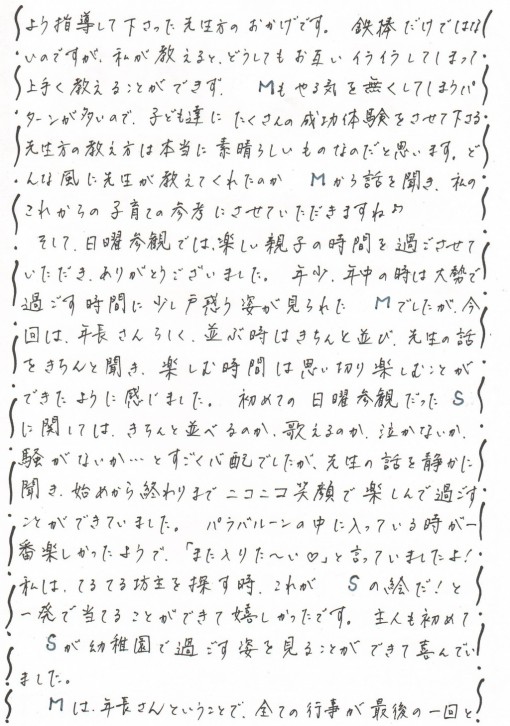 より指導して下さった先生方のおかげです。 鉄棒だけではな
いのですが、私が教えると、どうしてもお互いイライラしてしまって
上手く教えることができず、 Mもやる気を無くしてしまうパ
ターンが多いので、子ども達にたくさんの成功体験をさせて下さる
先生方の教え方は本当に素晴らしいものなのだと思います。ど
んな風に先生が教えてくれたのか Mから話を聞き、私の
これからの子育ての参考にさせていただきますね♪
そして、日曜参観では、楽しい親子の時間を過ごさせて
いただき、ありがとうございました。 年少、年中の時は大勢で
過ごす時間に少し戸惑う姿が見られた Mでしたが、今
回は、年長さんらしく、並ぶ時はきちんと並び、先生の話
をきちんと聞き、楽しむ時間は思い切り楽しむことが
できたように感じました。 初めての日曜参観だった S
に関しては、きちんと並べるのか、歌えるのか、泣かないか、
騒がないか…とすごく心配でしたが、先生の話を静かに
聞き、始めから終わりまでニコニコ笑顔で楽しんで過ごす
ことができていました。 パラバルーンの中に入っている時が一
番楽しかったようで、「また入りた〜い♡」と言っていましたよ!
私は、てるてる坊主を探す時、これが Sの絵だ!と
一発で当てることができて嬉しかったです。 主人も初めて
Sが幼稚園で過ごす姿を見ることができて喜んでい
ました。
Mは、年長さんということで、全ての行事が最後の一回と